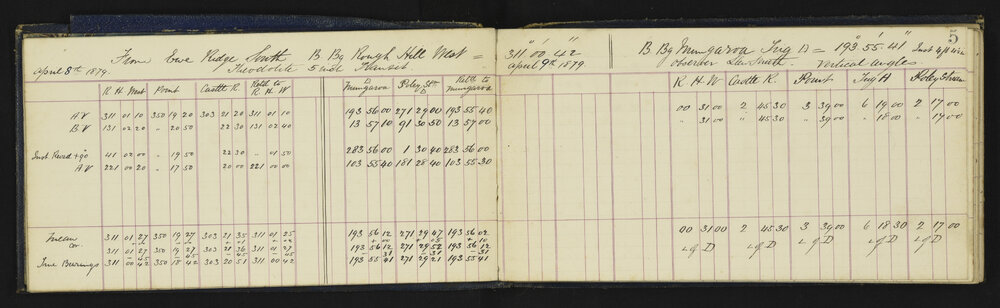 From Ewe Ridge South B Bg Rough Hill West = 311° 00' 42"
April 8th 1879. Theodolite 5 inch
R. H. West Point Castle R Retn to R. H. W Mungaroa Poley Stn D Retn to mungaroa
A V 311 01 10 350 19 20 303 21 20 311 01 10 193 56 00 271 29 00 193 55 40
B V 131 02 20 " 20 50 22 30 131 02 40 13 57 10 91 30 50 13 57 00
Inst Revd + 90 41 02 00 " 19 50 22 30 " 01 50 283 56 00 1 30 40 283 56 00
A V 221 00 20 " 17 50 20 00 221 00 00 103 55 40 181 28 40 103 55 30
Mean 311 01 27 350 19 27 303 21 35 311 01 25 193 56 12 271 29 47 193 56 02
Cor
311 01 27 350 19 27 303 21 36 311 01 27 193 56 12 271 29 52 193 56 12
True Bearings 311 00 42 350 18 42 303 20 51 311 00 42 193 55 41 271 29 21 193 55 41
5
B. Bg Mungaroa Trig D = 193° 55' 41"
April 9th 1879 observer Vertical angles.
R H. W Castle R. Point Trig H Poley Stn
00 31 00 2 45 30 3 39 00 6 19 00 2 17 00
" 31 00 " 45 30 " 39 00 " 18 00 " 17 00
00 31 00 2 45 30 3 39 00 6 18 30 2 17 00
L of D L of D L of D L of D L of D